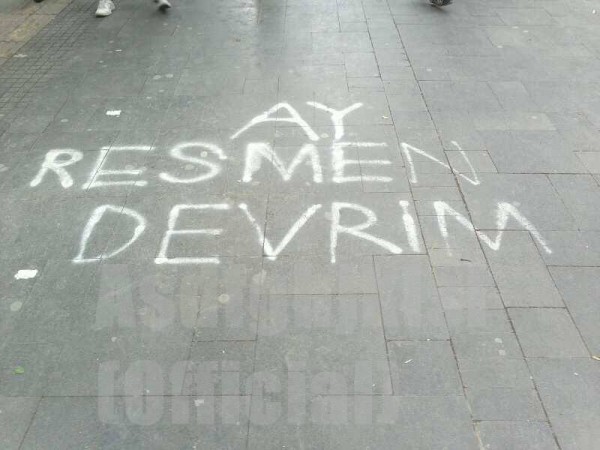 AY
RESMEN
DEVRIM
(Official)